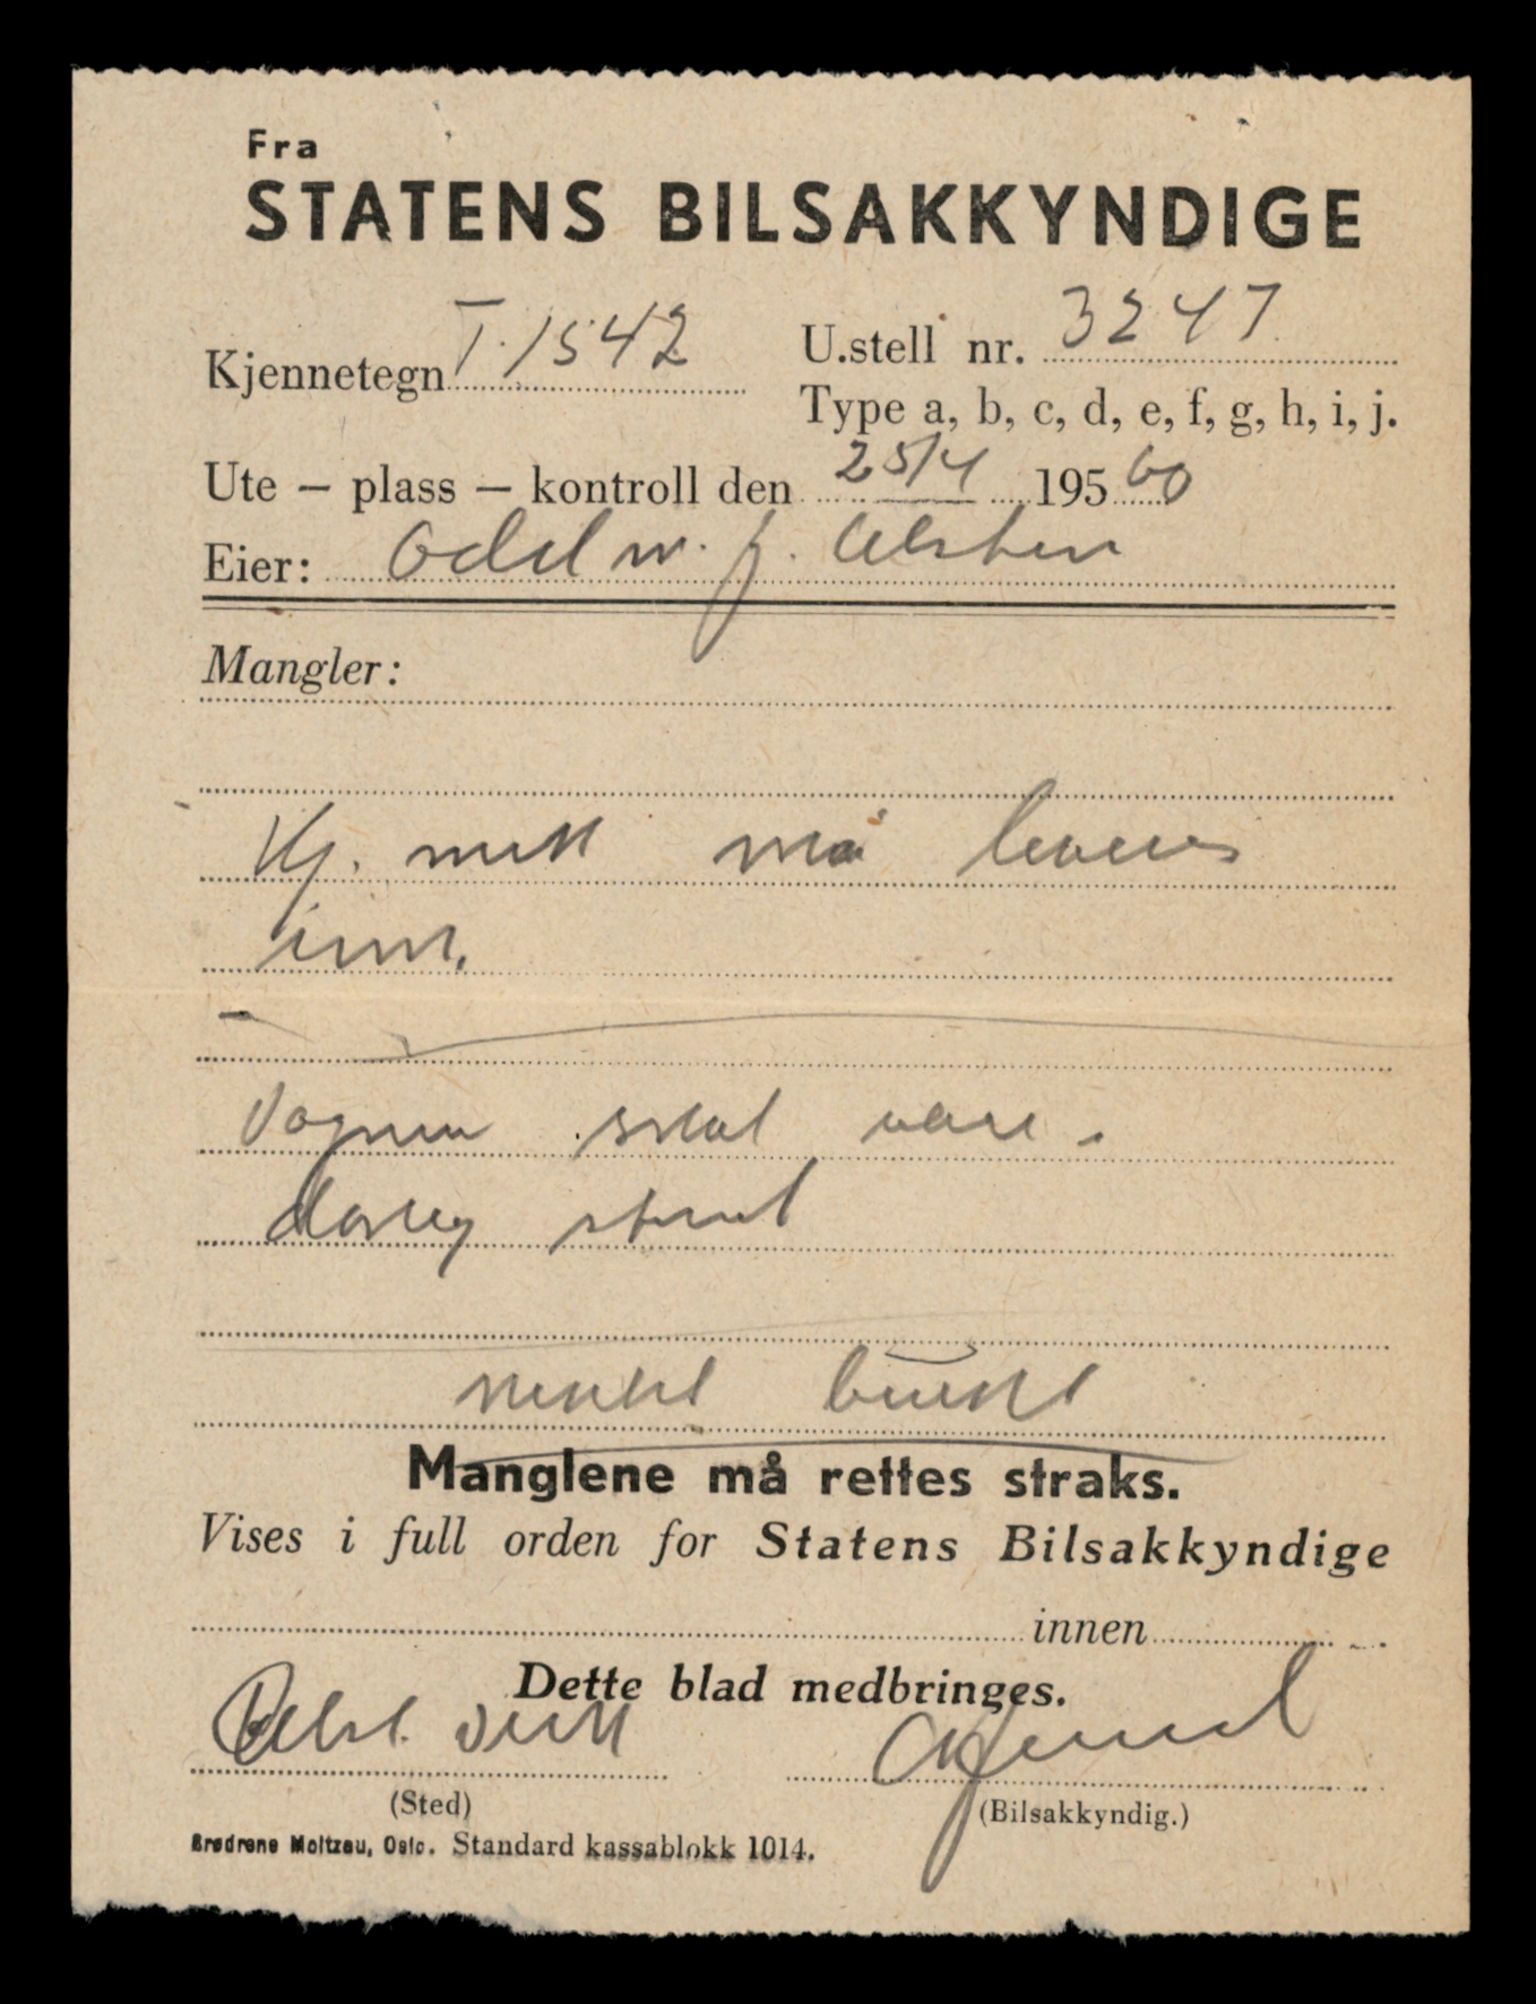 Fra
STATENS BILSAKKYNDIGE
Kjennetegn T.1542 U.stell nr. 3247
Type a, b, c, d, e, f, g, h, i, j.
Ute – plass – kontroll den 25/4 195 60
Eier: Odd
Mangler:
Kj. må leveres
inn.
Vognen skal være
Manglene må rettes straks.
Vises i full orden for Statens Bilsakkyndige
innen
Dette blad medbringes.
(Sted)
(Bilsakkyndig.)
Brødrene Moltzau, Oslo. Standard kassablokk 1014.